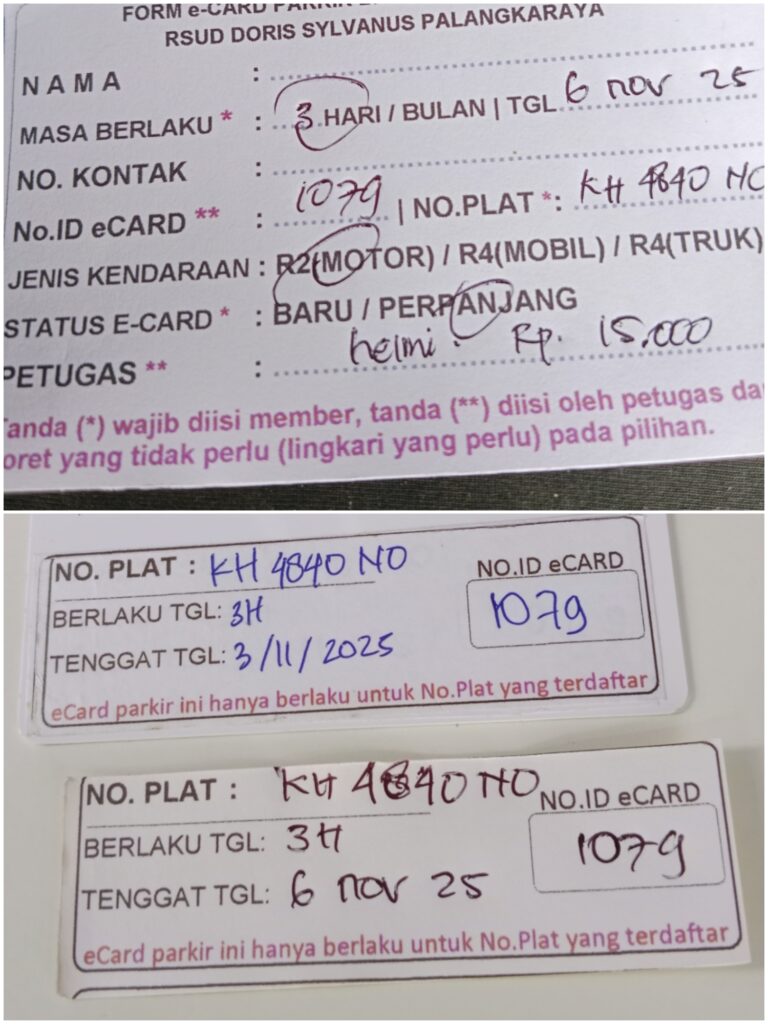 FORM e-CARD PARKIR
RSUD DORIS SYLVANUS PALANGKARAYA
NAMA :
MASA BERLAKU * : 3 HARI / BULAN | TGL 6 nov 25
NO. KONTAK :
No.ID eCARD ** : 1079 | NO.PLAT *: KH 4840 NO
JENIS KENDARAAN : R2(MOTOR) / R4(MOBIL) / R4(TRUK)
STATUS E-CARD * : BARU / PERPANJANG
PETUGAS ** : helmi. Rp. 15.000
Tanda (*) wajib diisi member, tanda (**) diisi oleh petugas da
oret yang tidak perlu (lingkari yang perlu) pada pilihan.
NO. PLAT : KH 4840 NO
NO.ID eCARD
BERLAKU TGL: 3H
1079
TENGGAT TGL: 3/11/2025
eCard parkir ini hanya berlaku untuk No.Plat yang terdaftar
NO. PLAT : KH 4840 NO
NO.ID eCARD
BERLAKU TGL: 3H
1079
TENGGAT TGL: 6 nov 25
eCard parkir ini hanya berlaku untuk No.Plat yang terdaftar